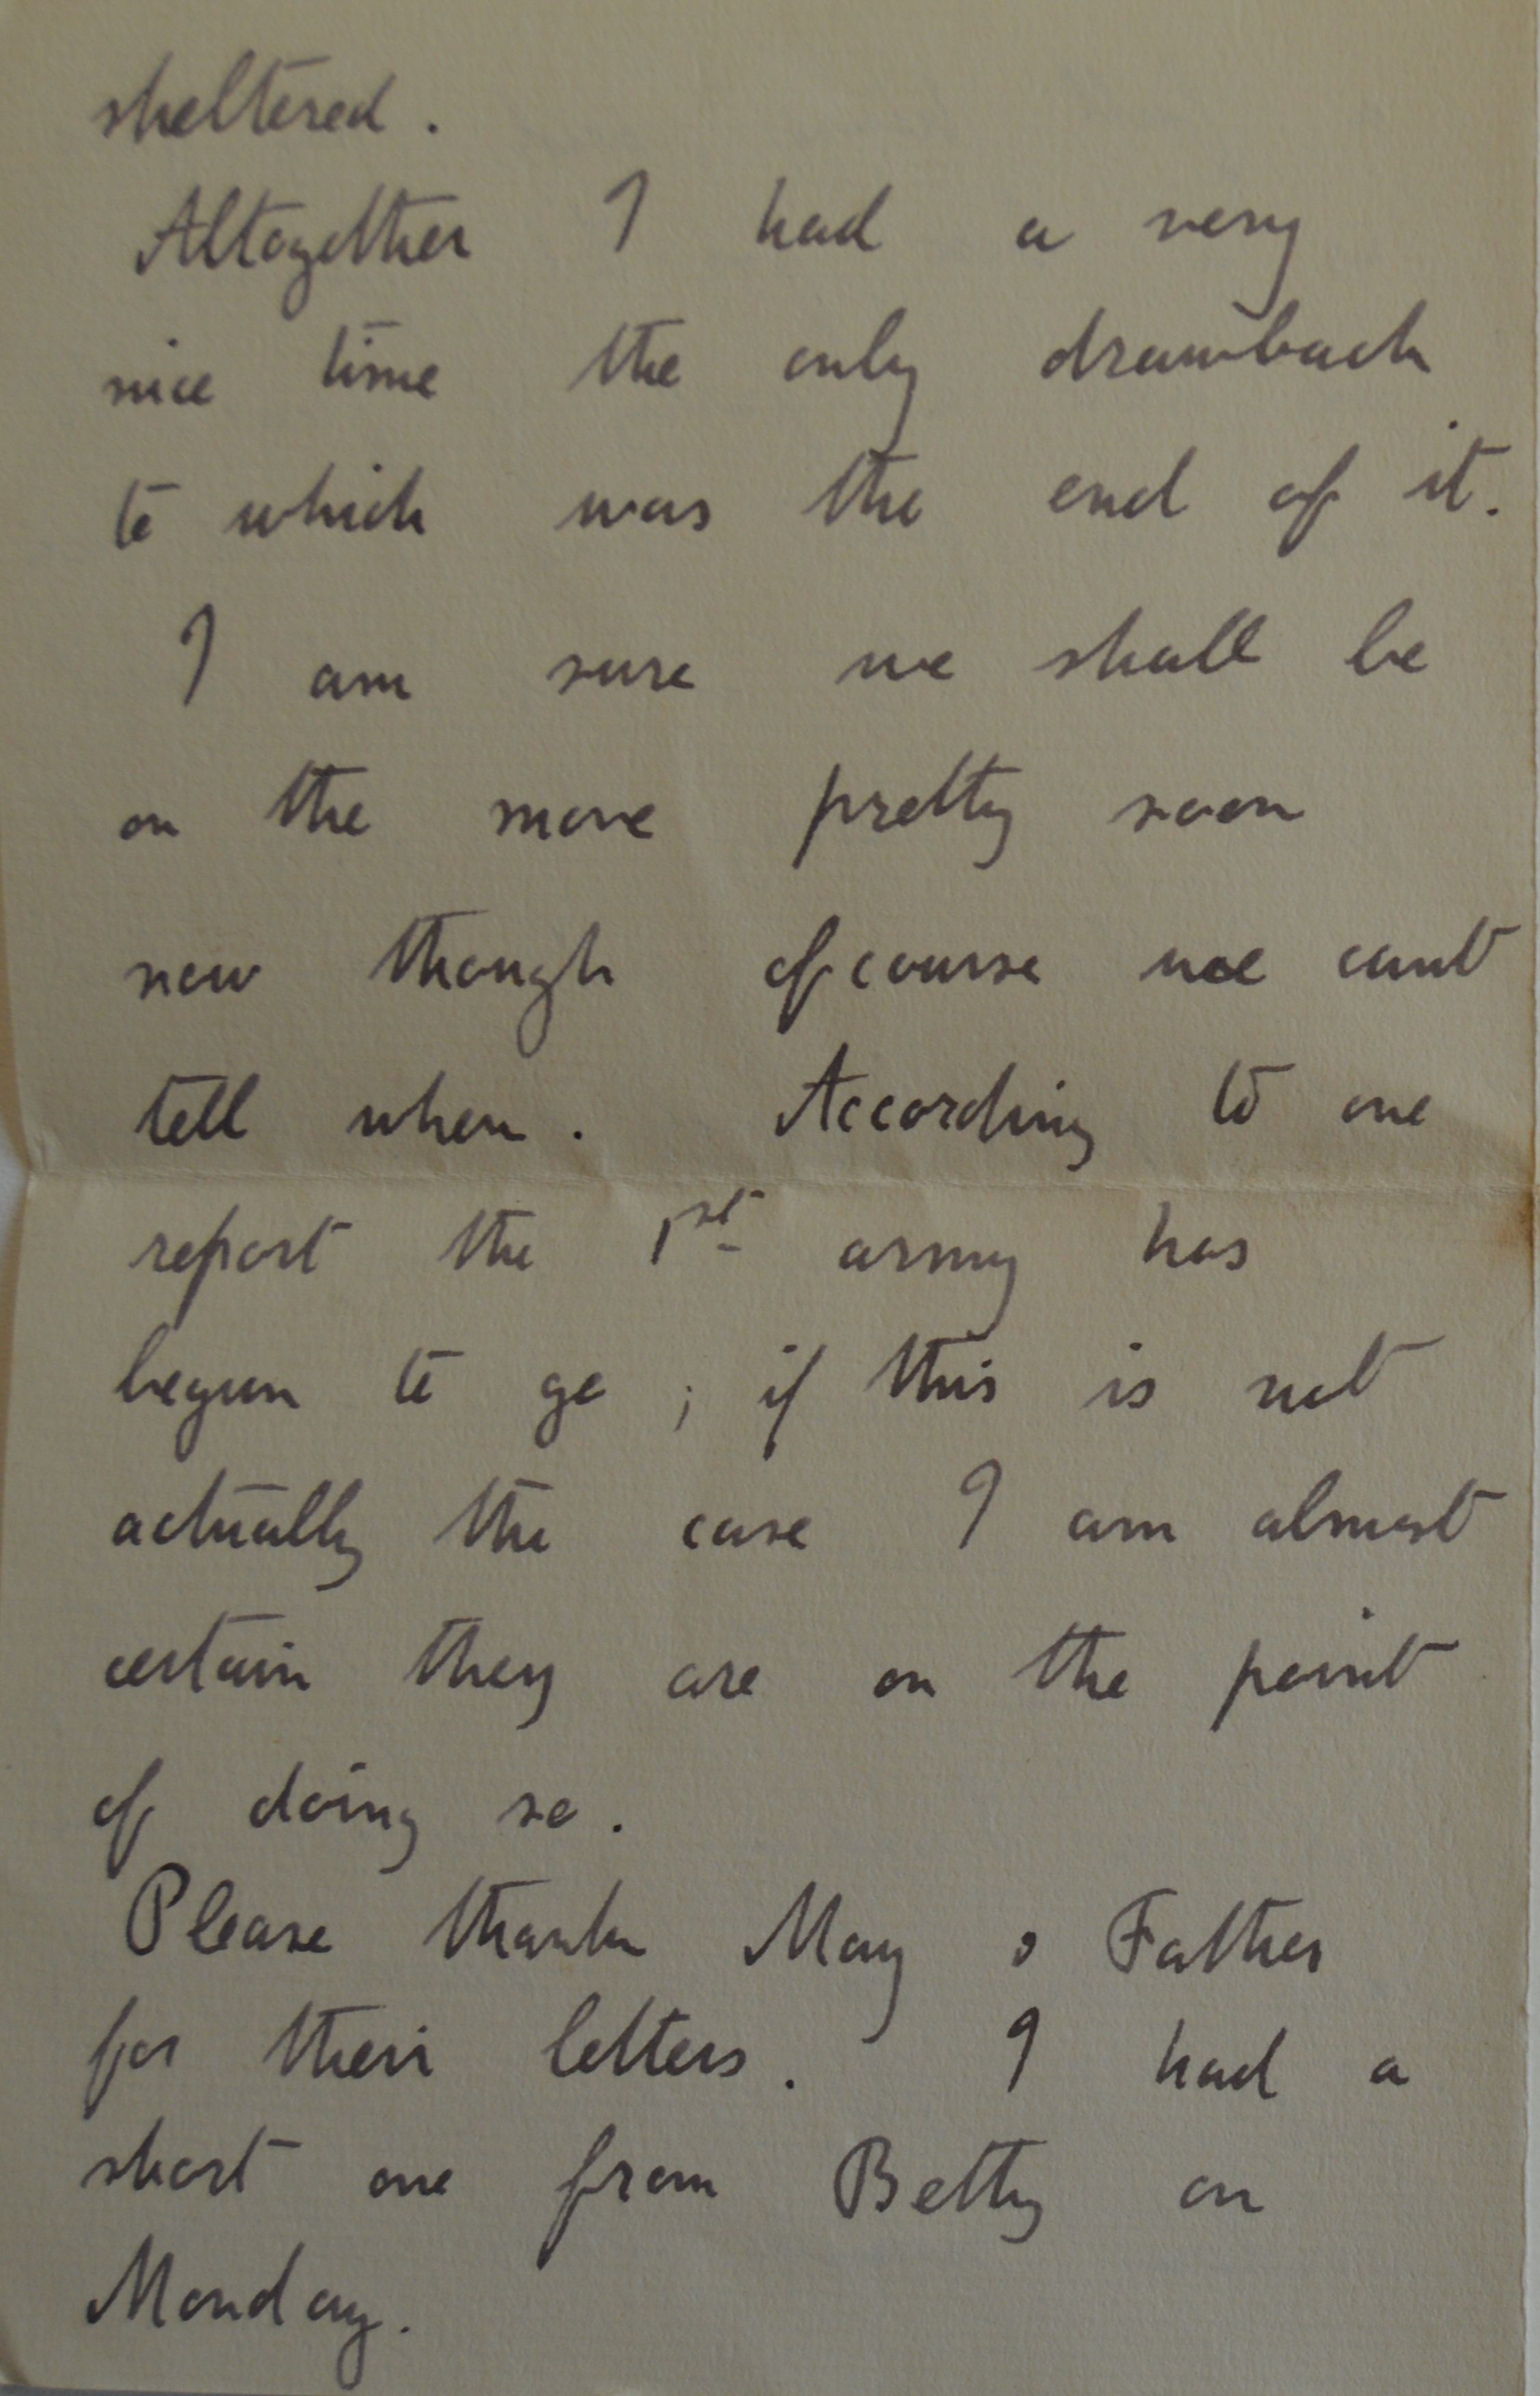 sheltered.
Altogether I had a very
nice time the only drawback
to which was the end of it.
I am sure we shall be
on the move pretty soon
now though ofcourse we cant
tell when. According to one
report the 1st army has
begun to go; if this is not
actually the case I am almost
certain they are on the point
of doing so.
Please thank May & Father
for their letters. I had a
short one from Betty on
Monday.